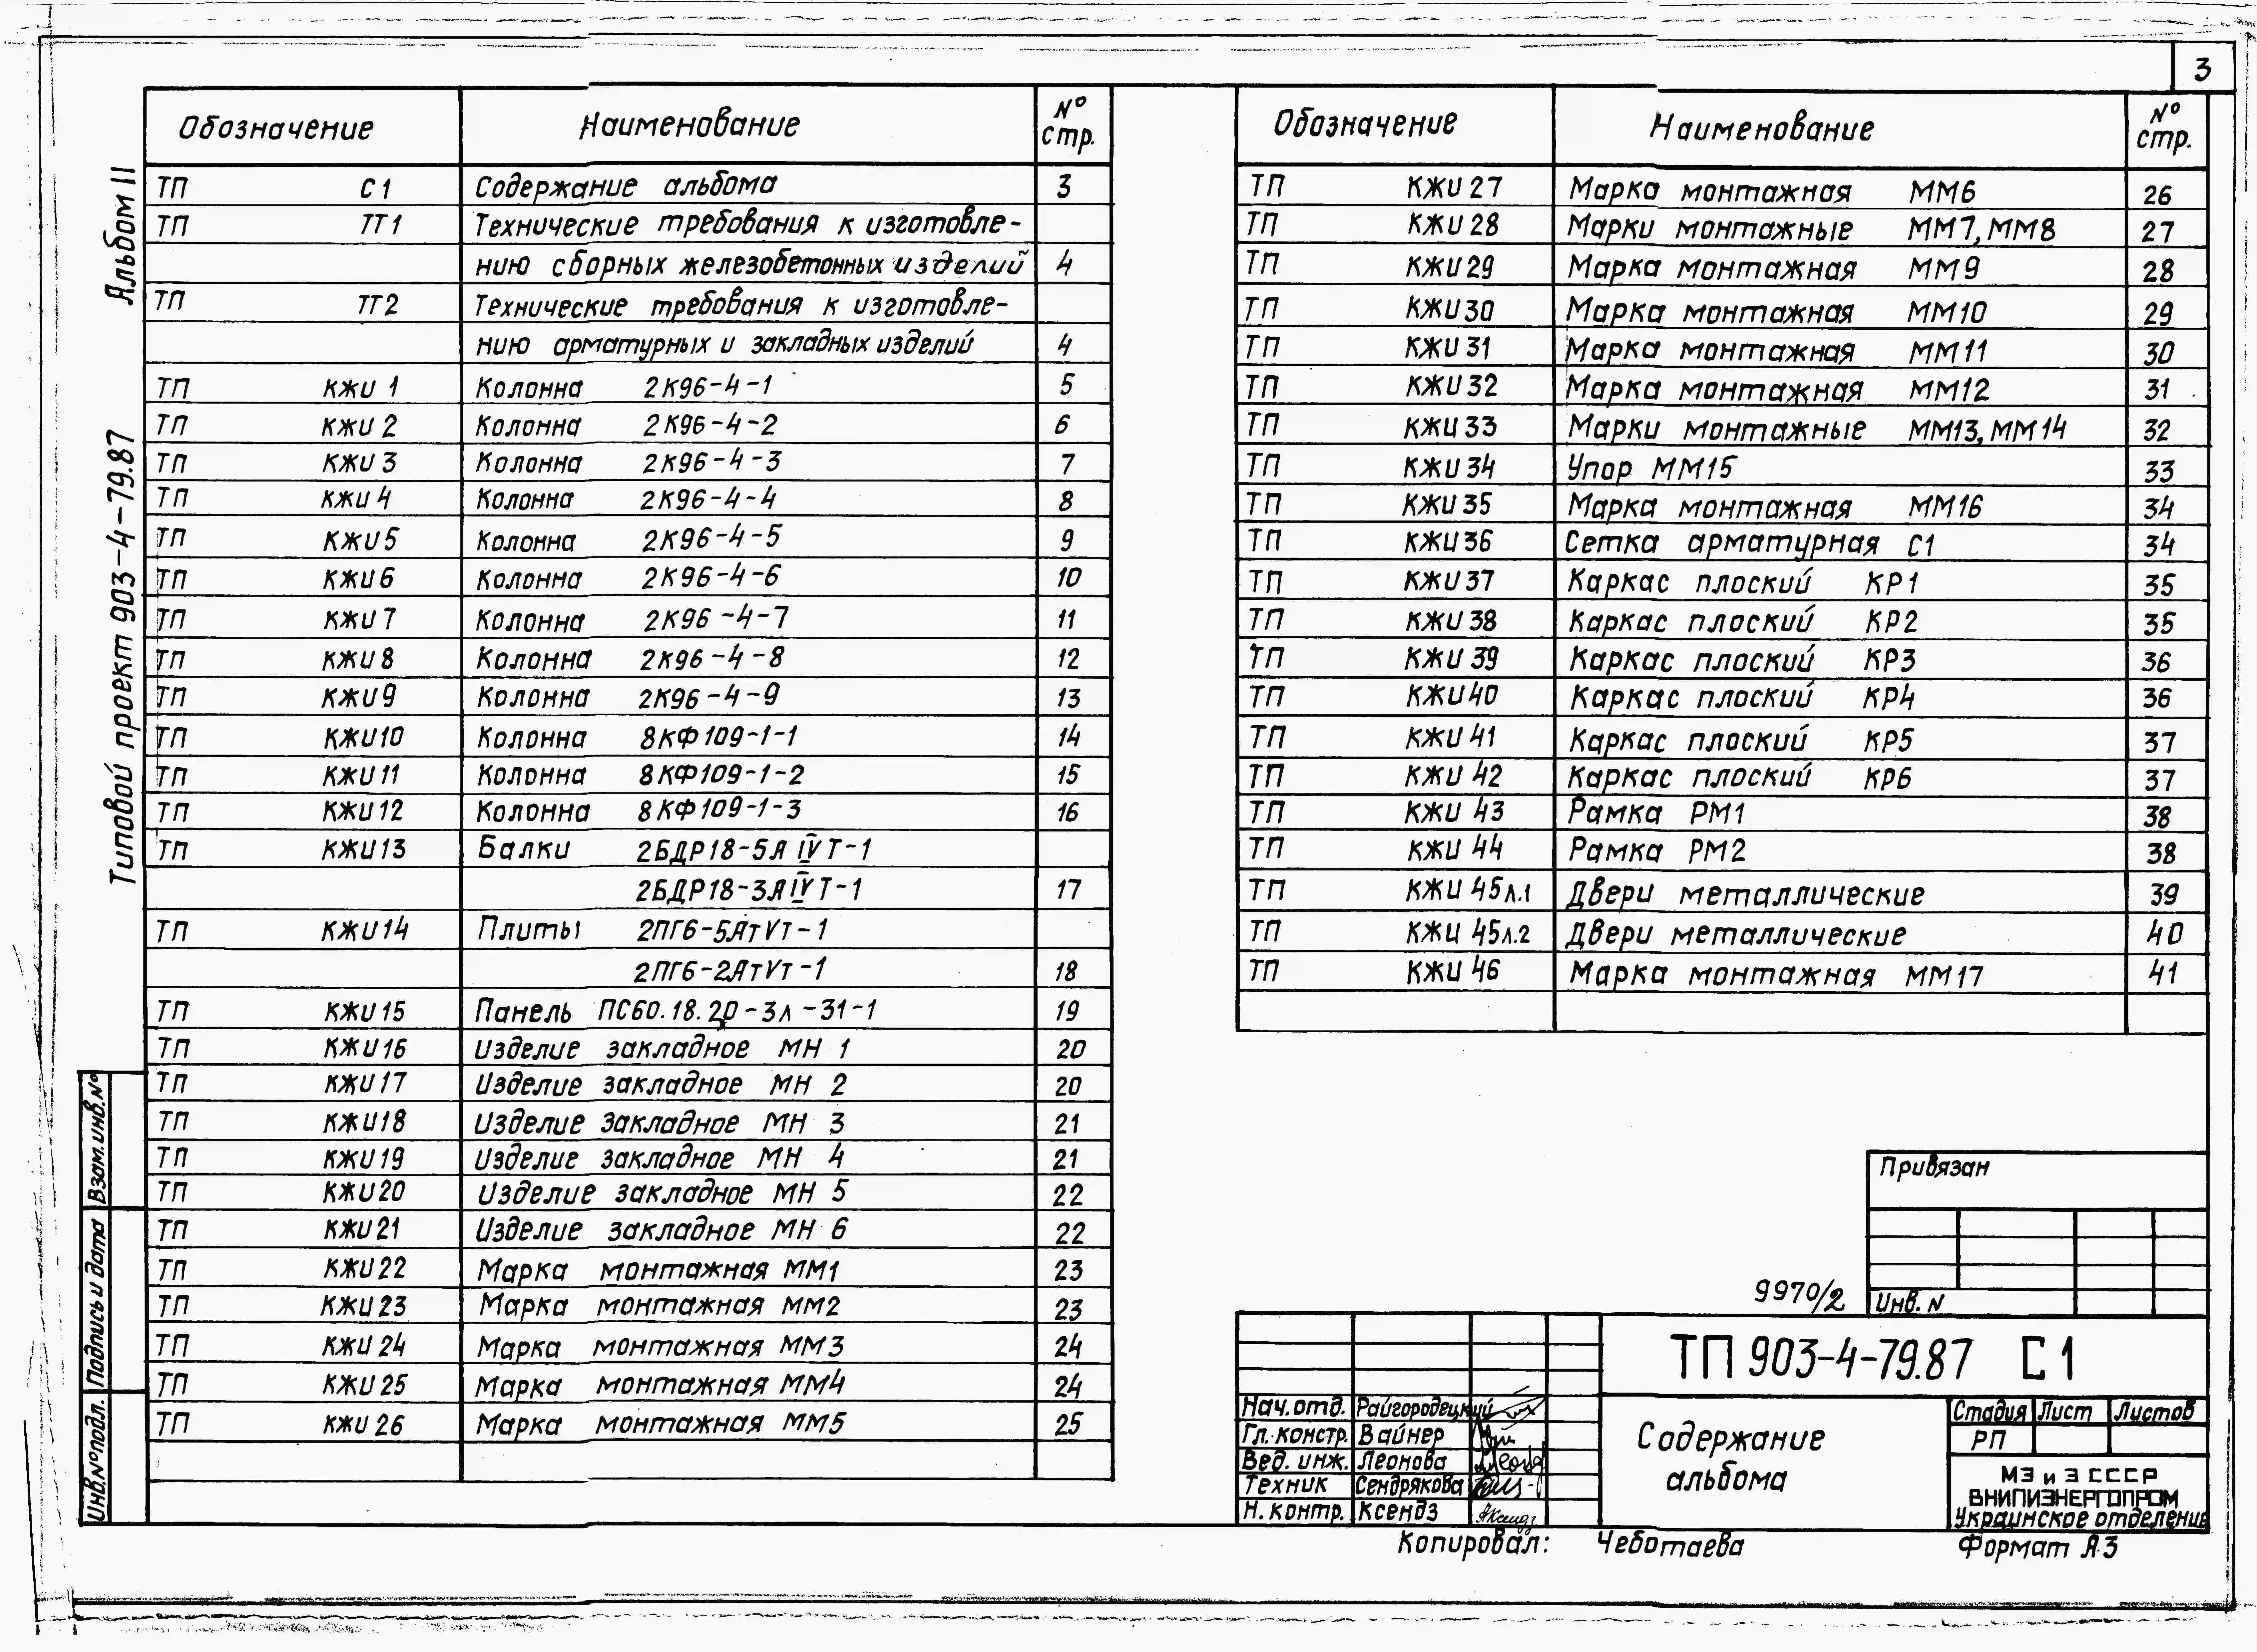 3
Альбом II
Типовой проект 903-4-79.87
Обозначение Наименование № стр.
ТП С1 Содержание альбома 3
ТП ТТ1 Технические требования к изготовле-
нию сборных железобетонных изделий 4
ТП ТТ2 Технические требования к изготовле-
нию арматурных и закладных изделий 4
ТП КЖИ 1 Колонна 2К96-4-1 5
ТП КЖИ 2 Колонна 2К96-4-2 6
ТП КЖИ 3 Колонна 2К96-4-3 7
ТП КЖИ 4 Колонна 2К96-4-4 8
ТП КЖИ 5 Колонна 2К96-4-5 9
ТП КЖИ 6 Колонна 2К96-4-6 10
ТП КЖИ 7 Колонна 2К96-4-7 11
ТП КЖИ 8 Колонна 2К96-4-8 12
ТП КЖИ 9 Колонна 2К96-4-9 13
ТП КЖИ10 Колонна 8КФ109-1-1 14
ТП КЖИ11 Колонна 8КФ109-1-2 15
ТП КЖИ12 Колонна 8КФ109-1-3 16
ТП КЖИ13 Балки 2БДР18-5А IV Т-1
2БДР18-3А IV Т-1 17
ТП КЖИ14 Плиты 2ПГ6-5АтVт-1
2ПГ6-2АтVт-1 18
ТП КЖИ15 Панель ПС60.18.20-3л-31-1 19
ТП КЖИ16 Изделие закладное МН 1 20
ТП КЖИ17 Изделие закладное МН 2 20
ТП КЖИ18 Изделие закладное МН 3 21
ТП КЖИ19 Изделие закладное МН 4 21
ТП КЖИ20 Изделие закладное МН 5 22
ТП КЖИ21 Изделие закладное МН 6 22
ТП КЖИ22 Марка монтажная ММ1 23
ТП КЖИ23 Марка монтажная ММ2 23
ТП КЖИ24 Марка монтажная ММ3 24
ТП КЖИ25 Марка монтажная ММ4 24
ТП КЖИ26 Марка монтажная ММ5 25
Обозначение Наименование № стр.
ТП КЖИ27 Марка монтажная ММ6 26
ТП КЖИ28 Марки монтажные ММ7, ММ8 27
ТП КЖИ29 Марка монтажная ММ9 28
ТП КЖИ30 Марка монтажная ММ10 29
ТП КЖИ31 Марка монтажная ММ11 30
ТП КЖИ32 Марка монтажная ММ12 31
ТП КЖИ33 Марки монтажные ММ13, ММ14 32
ТП КЖИ34 Упор ММ15 33
ТП КЖИ35 Марка монтажная ММ16 34
ТП КЖИ36 Сетка арматурная С1 34
ТП КЖИ37 Каркас плоский КР1 35
ТП КЖИ38 Каркас плоский КР2 35
ТП КЖИ39 Каркас плоский КР3 36
ТП КЖИ40 Каркас плоский КР4 36
ТП КЖИ41 Каркас плоский КР5 37
ТП КЖИ42 Каркас плоский КР6 37
ТП КЖИ43 Рамка РМ1 38
ТП КЖИ44 Рамка РМ2 38
ТП КЖИ45л.1 Двери металлические 39
ТП КЖИ45л.2 Двери металлические 40
ТП КЖИ46 Марка монтажная ММ17 41
Взам.инв.№
Подпись и дата
Инв.№подл.
Привязан
Инв. N
9970/2
ТП 903-4-79.87 С1
Нач.отд. Райгородецкий
Гл.констр. Вайнер
Вед. инж. Леонова
Техник Сендрякова
Н.контр. Ксендз
Содержание
альбома
Стадия Лист Листов
РП
МЭ и Э СССР
ВНИПИЭНЕРГОПРОМ
Украинское отделение
Копировал: Чеботаева Формат А3